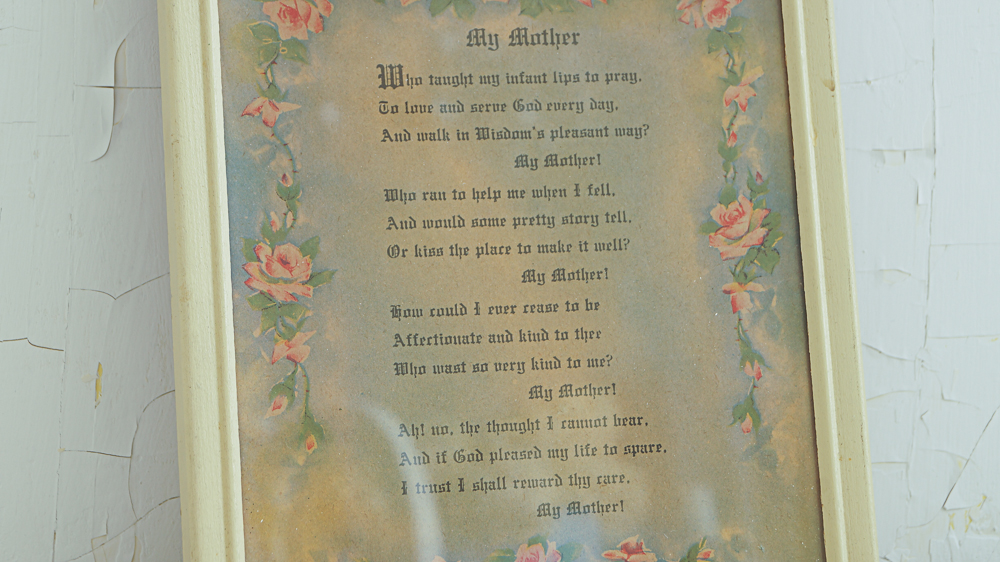 My Mother
Who taught my infant lips to pray,
To love and serve God every day,
And walk in Wisdom's pleasant way?
My Mother!
Who ran to help me when I fell,
And would some pretty story tell,
Or kiss the place to make it well?
My Mother!
How could I ever cease to be
Affectionate and kind to thee
Who wast so very kind to me?
My Mother!
Ah! no, the thought I cannot bear,
And if God pleased my life to spare,
I trust I shall reward thy care,
My Mother!